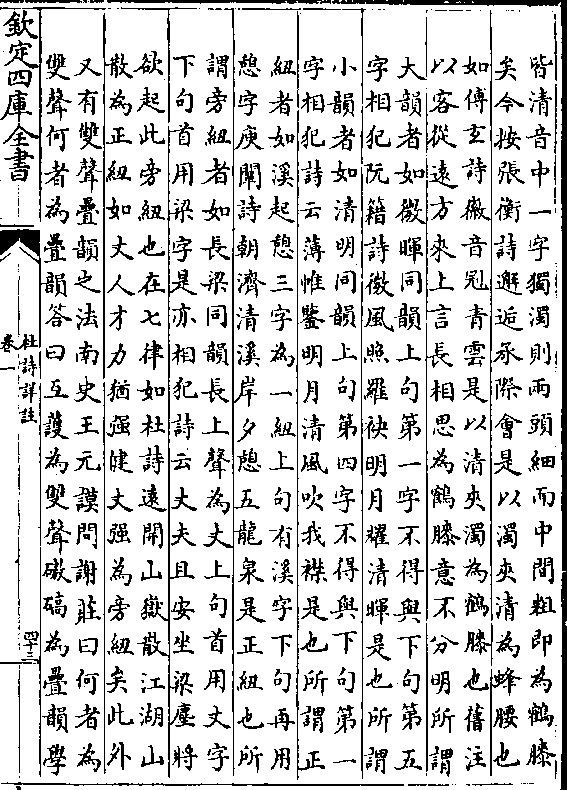 皆清音中一字獨濁則兩頭細而中間粗即為鶴膝
矣今按張衡詩邂逅承際會是以濁夾清為蜂腰也
如傅玄詩徽音冠青雲是以清夾濁為鶴膝也舊注
以客從遠方來上言長相思為鶴膝意不分明所謂
大韻者如微暉同韻上句第一字不得與下句第五
字相犯阮籍詩微風照羅袂明月耀清暉是也所謂
小韻者如清明同韻上句第四字不得與下句第一
字相犯詩云薄帷鑒明月清風吹我襟是也所謂正
紐者如溪起憩三字為一紐上句有溪字下句再用
憩字庾闡詩朝濟清溪岸夕憩五龍泉是正紐也所
謂旁紐者如長梁同韻長上聲為丈上句首用丈字
下句首用梁字是亦相犯詩云丈夫且安坐梁塵將
欲起此旁紐也在七律如杜詩遠開山嶽散江湖山
散為正紐如丈人才力猶强健丈强為旁紐矣此外
又有雙聲疊韻之法南史王元謨問謝莊曰何者為
雙聲何者為疊韻答曰互護為雙聲磝碻為疊韻學
欽定四庫全書
杜詩詳註
卷一
四十三